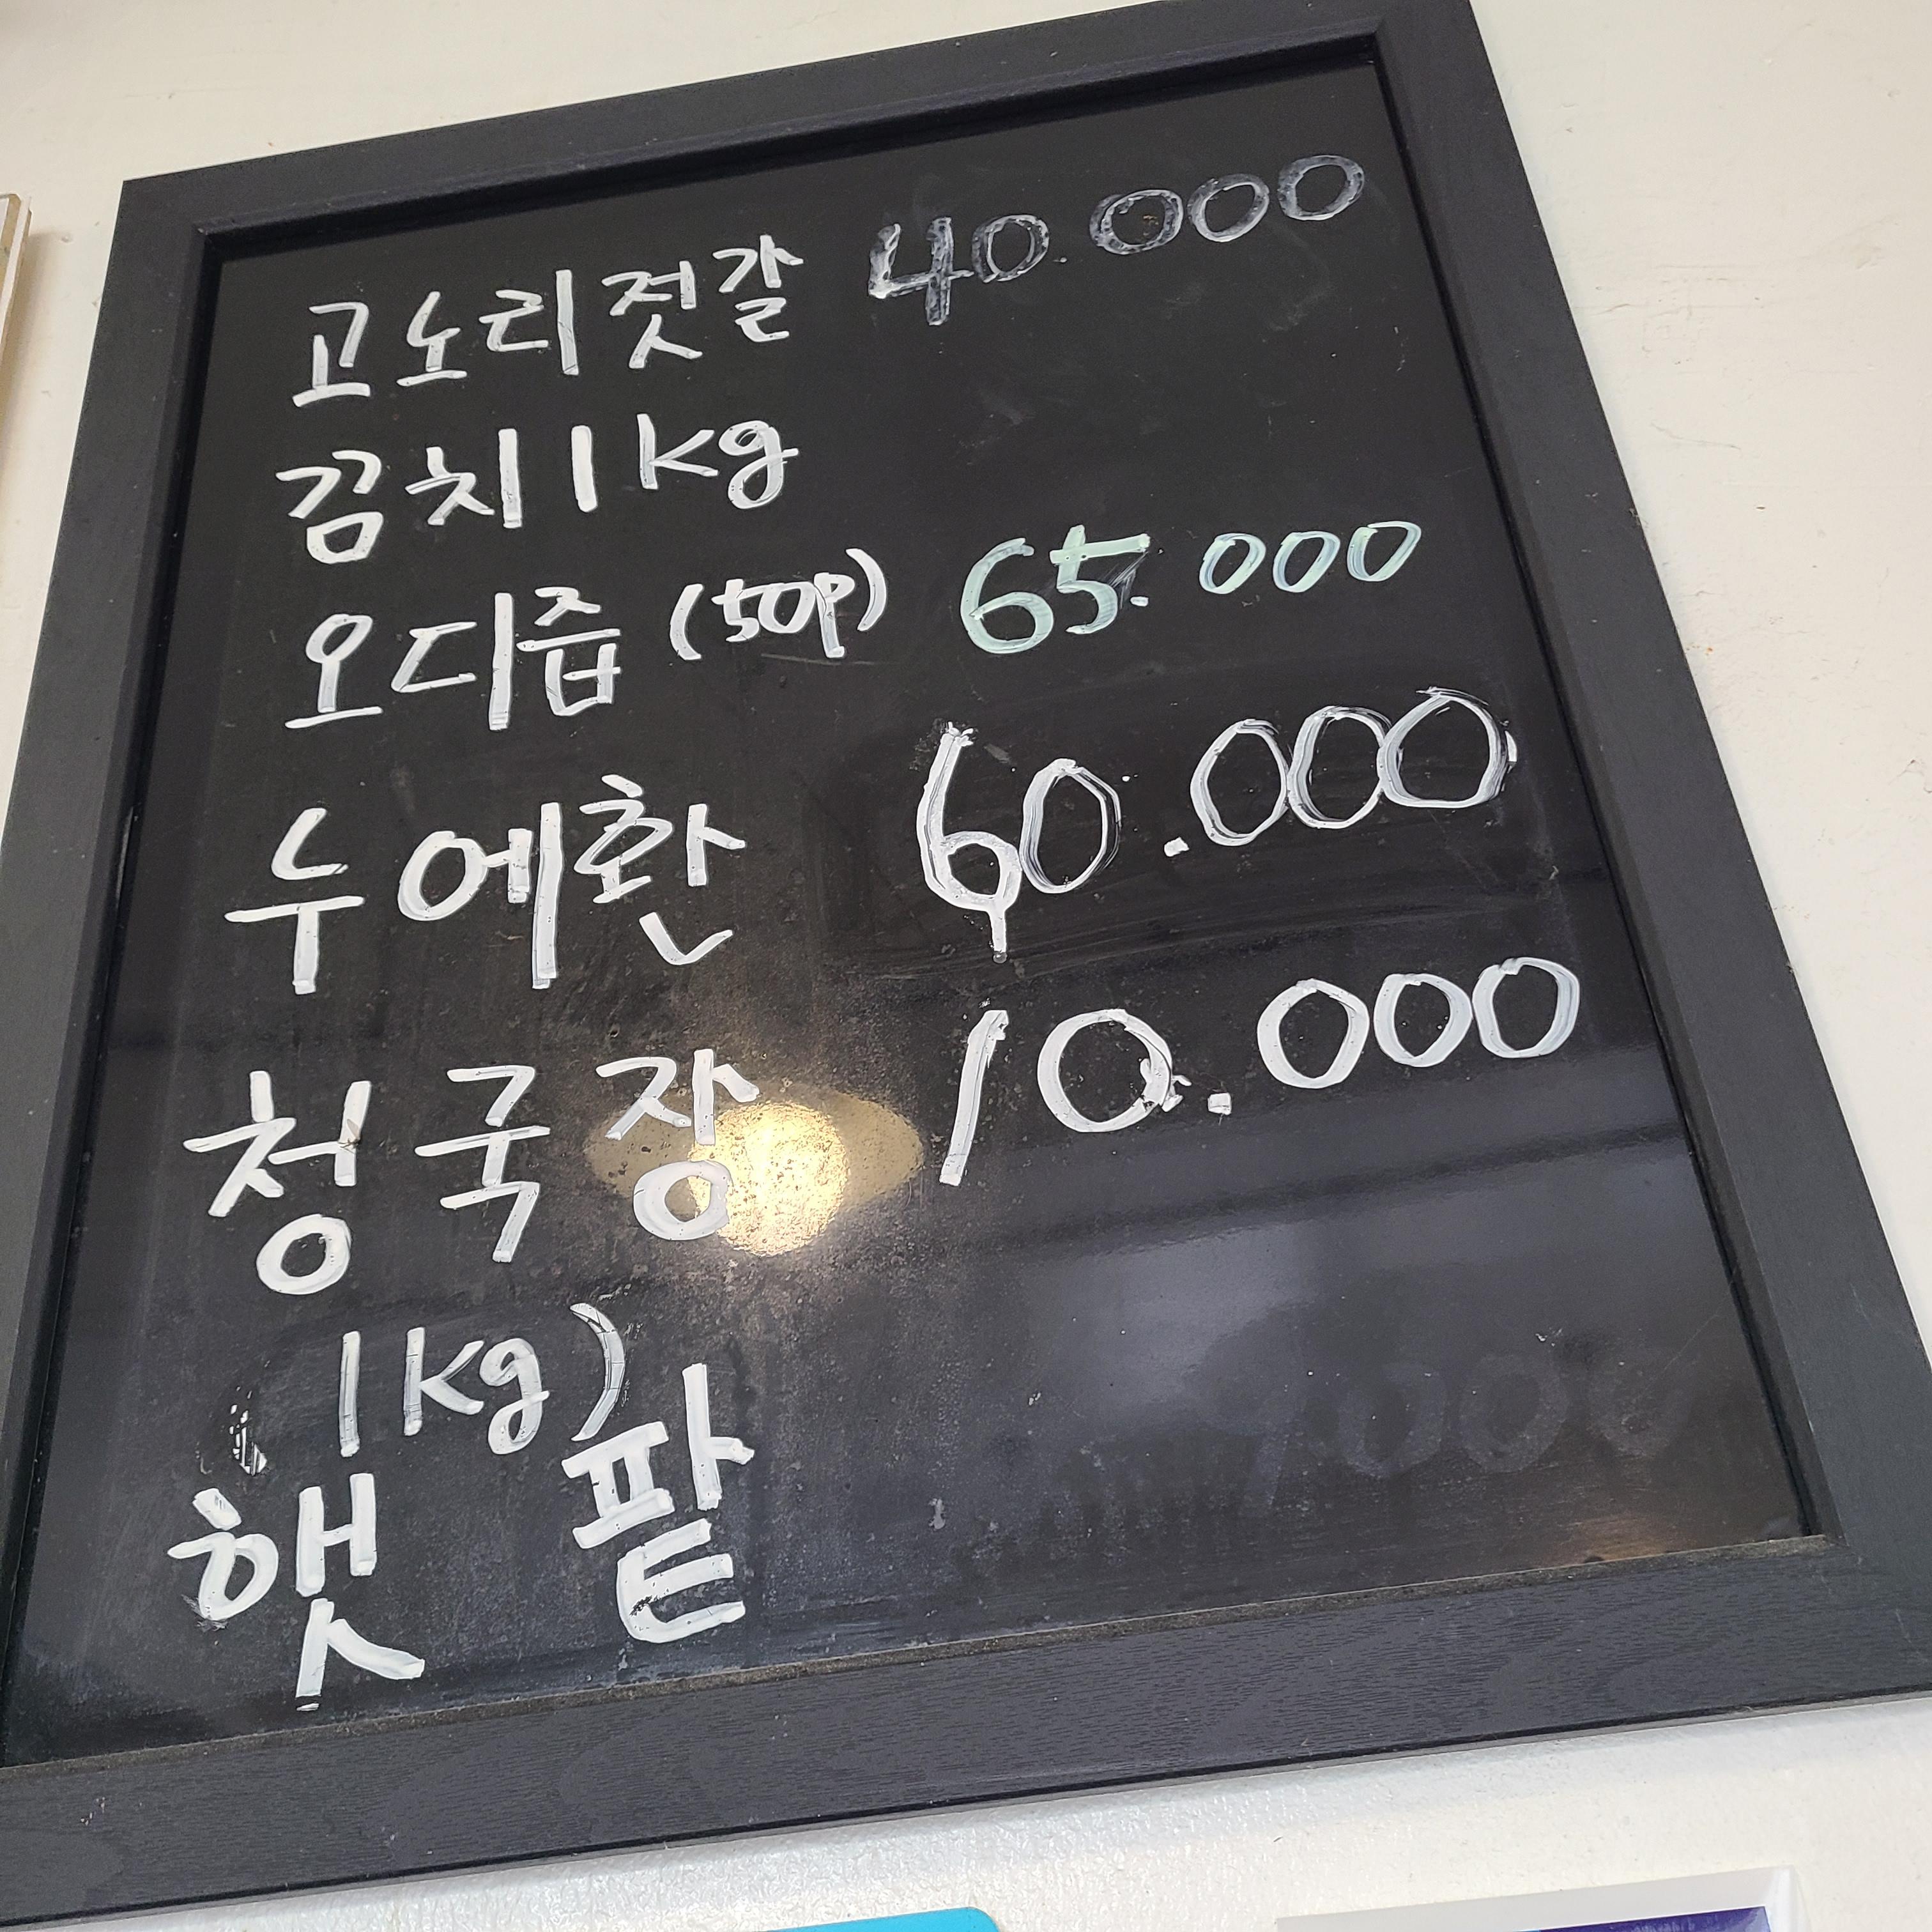 고노리젓갈 40.000
꼼치 1kg
오디즙 (50p) 65.000
누에환 60.000
청국장 10.000
(1kg)
햇팥